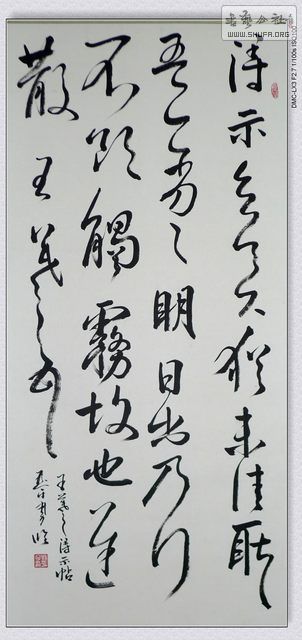 书艺公社
WWW.SHUFA.ORG
DMC-LX3 F2.7 1/100s
得示知足下猶未佳耿々
吾亦劣々明日出乃行
不欲觸霧故也遲
散王羲之頓首
王羲之得示帖
臨